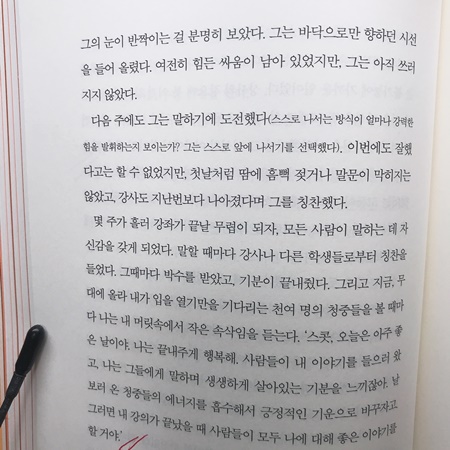 그의 눈이 반짝이는 걸 분명히 보았다. 그는 바닥으로만 향하던 시선
을 들어 올렸다. 여전히 힘든 싸움이 남아 있었지만, 그는 아직 쓰러
지지 않았다.
다음 주에도 그는 말하기에 도전했다(스스로 나서는 방식이 얼마나 강력한
힘을 발휘하는지 보이는가? 그는 스스로 앞에 나서기를 선택했다). 이번에도 잘했
다고는 할 수 없었지만, 첫날처럼 땀에 흠뻑 젖거나 말문이 막히지는
않았고, 강사도 지난번보다 나아졌다며 그를 칭찬했다.
몇 주가 흘러 강좌가 끝날 무렵이 되자, 모든 사람이 말하는 데 자
신감을 갖게 되었다. 말할 때마다 강사나 다른 학생들로부터 칭찬을
들었다. 그때마다 박수를 받았고, 기분이 끝내줬다. 그리고 지금, 무
대에 올라 내가 입을 열기만을 기다리는 천여 명의 청중들을 볼 때마
다 나는 내 머릿속에서 작은 속삭임을 듣는다. ‘스콧, 오늘은 아주 좋
은 날이야. 나는 끝내주게 행복해. 사람들이 내 이야기를 들으러 왔
고, 나는 그들에게 말하며 생생하게 살아있는 기분을 느끼잖아. 날
보러 온 청중들의 에너지를 흡수해서 긍정적인 기운으로 바꾸자고.
그러면 내 강의가 끝났을 때 사람들이 모두 나에 대해 좋은 이야기를
할 거야.’